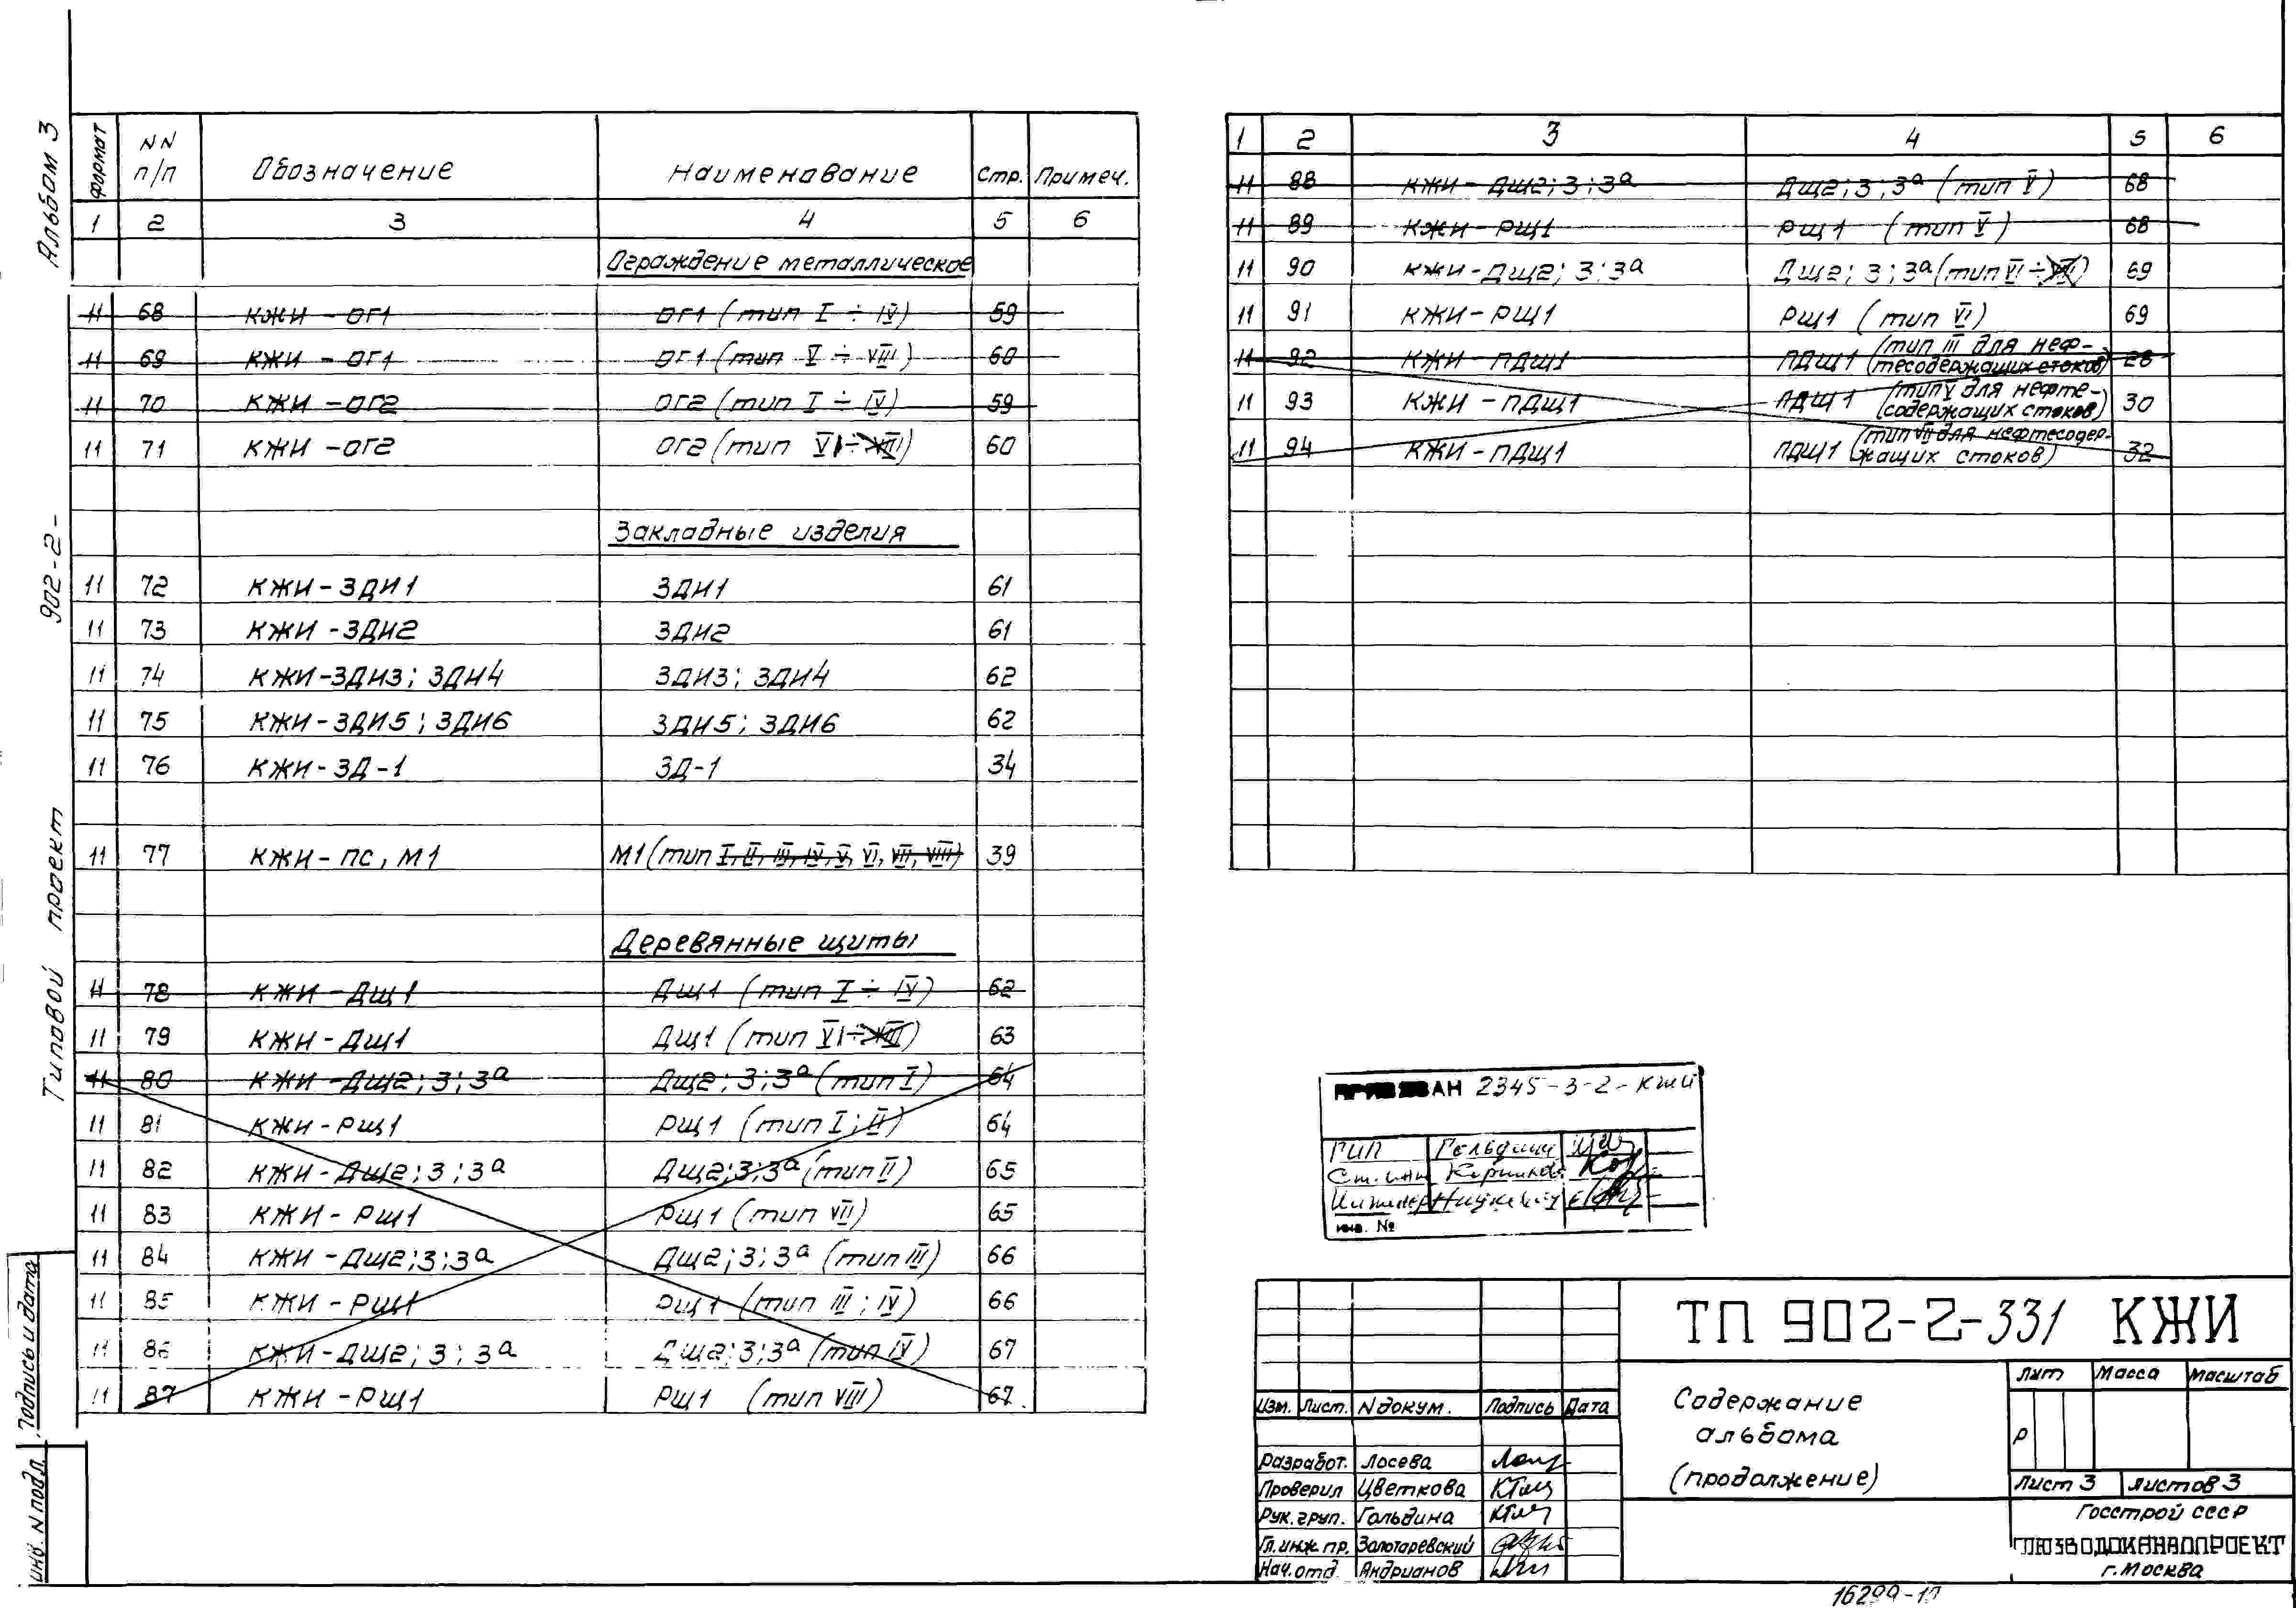 Альбом 3
902-2-
Типовой проект
Подпись и дата
Инв. N подл.
Формат | NN п/п | Обозначение | Наименование | Стр. | Примеч.
1 | 2 | 3 | 4 | 5 | 6
Ограждение металлическое
11 | 68 | КЖИ - ОГ1 | ОГ1 (тип I ÷ IV) | 59
11 | 69 | КЖИ - ОГ1 | ОГ1 (тип V ÷ VIII) | 60
11 | 70 | КЖИ - ОГ2 | ОГ2 (тип I ÷ IV) | 59
11 | 71 | КЖИ - ОГ2 | ОГ2 (тип VI ÷ VIII) | 60
Закладные изделия
11 | 72 | КЖИ - ЗДИ1 | ЗДИ1 | 61
11 | 73 | КЖИ - ЗДИ2 | ЗДИ2 | 61
11 | 74 | КЖИ - ЗДИ3; ЗДИ4 | ЗДИ3; ЗДИ4 | 62
11 | 75 | КЖИ - ЗДИ5; ЗДИ6 | ЗДИ5; ЗДИ6 | 62
11 | 76 | КЖИ - ЗД-1 | ЗД-1 | 34
11 | 77 | КЖИ - ПС, М1 | М1 (тип I, II, III, IV, V, VI, VII, VIII) | 39
Деревянные щиты
11 | 78 | КЖИ - ДЩ1 | ДЩ1 (тип I ÷ IV) | 62
11 | 79 | КЖИ - ДЩ1 | ДЩ1 (тип VI ÷ VIII) | 63
11 | 80 | КЖИ - ДЩ2; 3; 3а | ДЩ2; 3; 3а (тип I) | 64
11 | 81 | КЖИ - РЩ1 | РЩ1 (тип I; II) | 64
11 | 82 | КЖИ - ДЩ2; 3; 3а | ДЩ2; 3; 3а (тип II) | 65
11 | 83 | КЖИ - РЩ1 | РЩ1 (тип VII) | 65
11 | 84 | КЖИ - ДЩ2; 3; 3а | ДЩ2; 3; 3а (тип III) | 66
11 | 85 | КЖИ - РЩ1 | РЩ1 (тип III; IV) | 66
11 | 86 | КЖИ - ДЩ2; 3; 3а | ДЩ2; 3; 3а (тип IV) | 67
11 | 87 | КЖИ - РЩ1 | РЩ1 (тип VIII) | 67
1 | 2 | 3 | 4 | 5 | 6
11 | 88 | КЖИ - ДЩ2; 3; 3а | ДЩ2; 3; 3а (тип V) | 68
11 | 89 | КЖИ - РЩ1 | РЩ1 (тип V) | 68
11 | 90 | КЖИ - ДЩ2; 3; 3а | ДЩ2; 3; 3а (тип VI ÷ VIII) | 69
11 | 91 | КЖИ - РЩ1 | РЩ1 (тип VI) | 69
11 | 92 | КЖИ - ПДЩ1 | ПДЩ1 (тип III для нефтесодержащих стоков) | 28
11 | 93 | КЖИ - ПДЩ1 | ПДЩ1 (тип V для нефтесодержащих стоков) | 30
11 | 94 | КЖИ - ПДЩ1 | ПДЩ1 (тип VII для нефтесодержащих стоков) | 32
ПРИВЯЗАН 2345-3-2-КЖИ
ГИП
Ст. инж
Инженер
инв. №
ТП 902-2-331 КЖИ
Изм. Лист. N докум. Подпись Дата
Разработ. Лосева
Проверил Цветкова
Рук. груп. Гольдина
Гл. инж. пр. Золотаревский
Нач. отд. Андрианов
Содержание
альбома
(продолжение)
Лит Масса Масштаб
Р
Лист 3 Листов 3
Госстрой СССР
СОЮЗВОДОКАНАЛПРОЕКТ
г. Москва